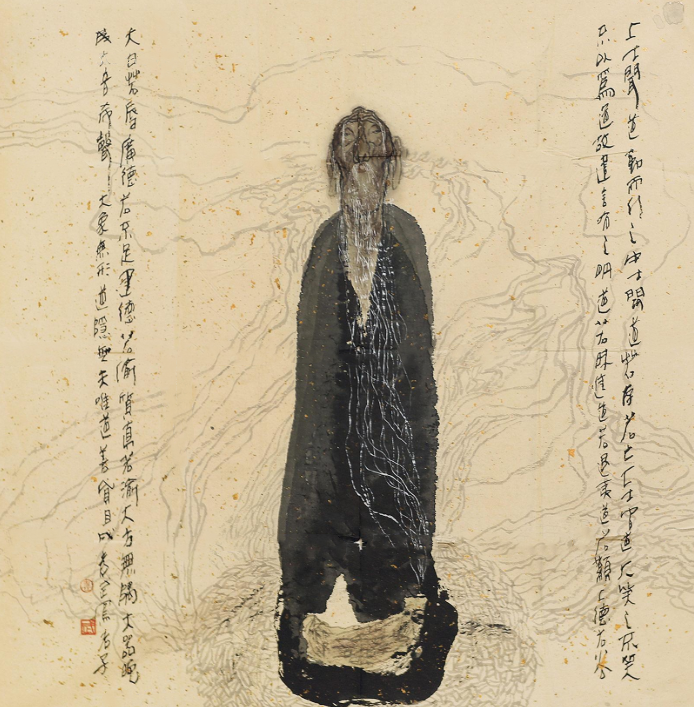 上士聞道勤而行之中士聞道若存若亡下士聞道大笑之不笑
足以爲道故建言有之明道若昧進道若退夷道若纇上德若谷
大白若辱廣德若不足建德若偷質真若渝大方無隅大器晚
成大音希聲大象無形道隱無名唯道善貸且成